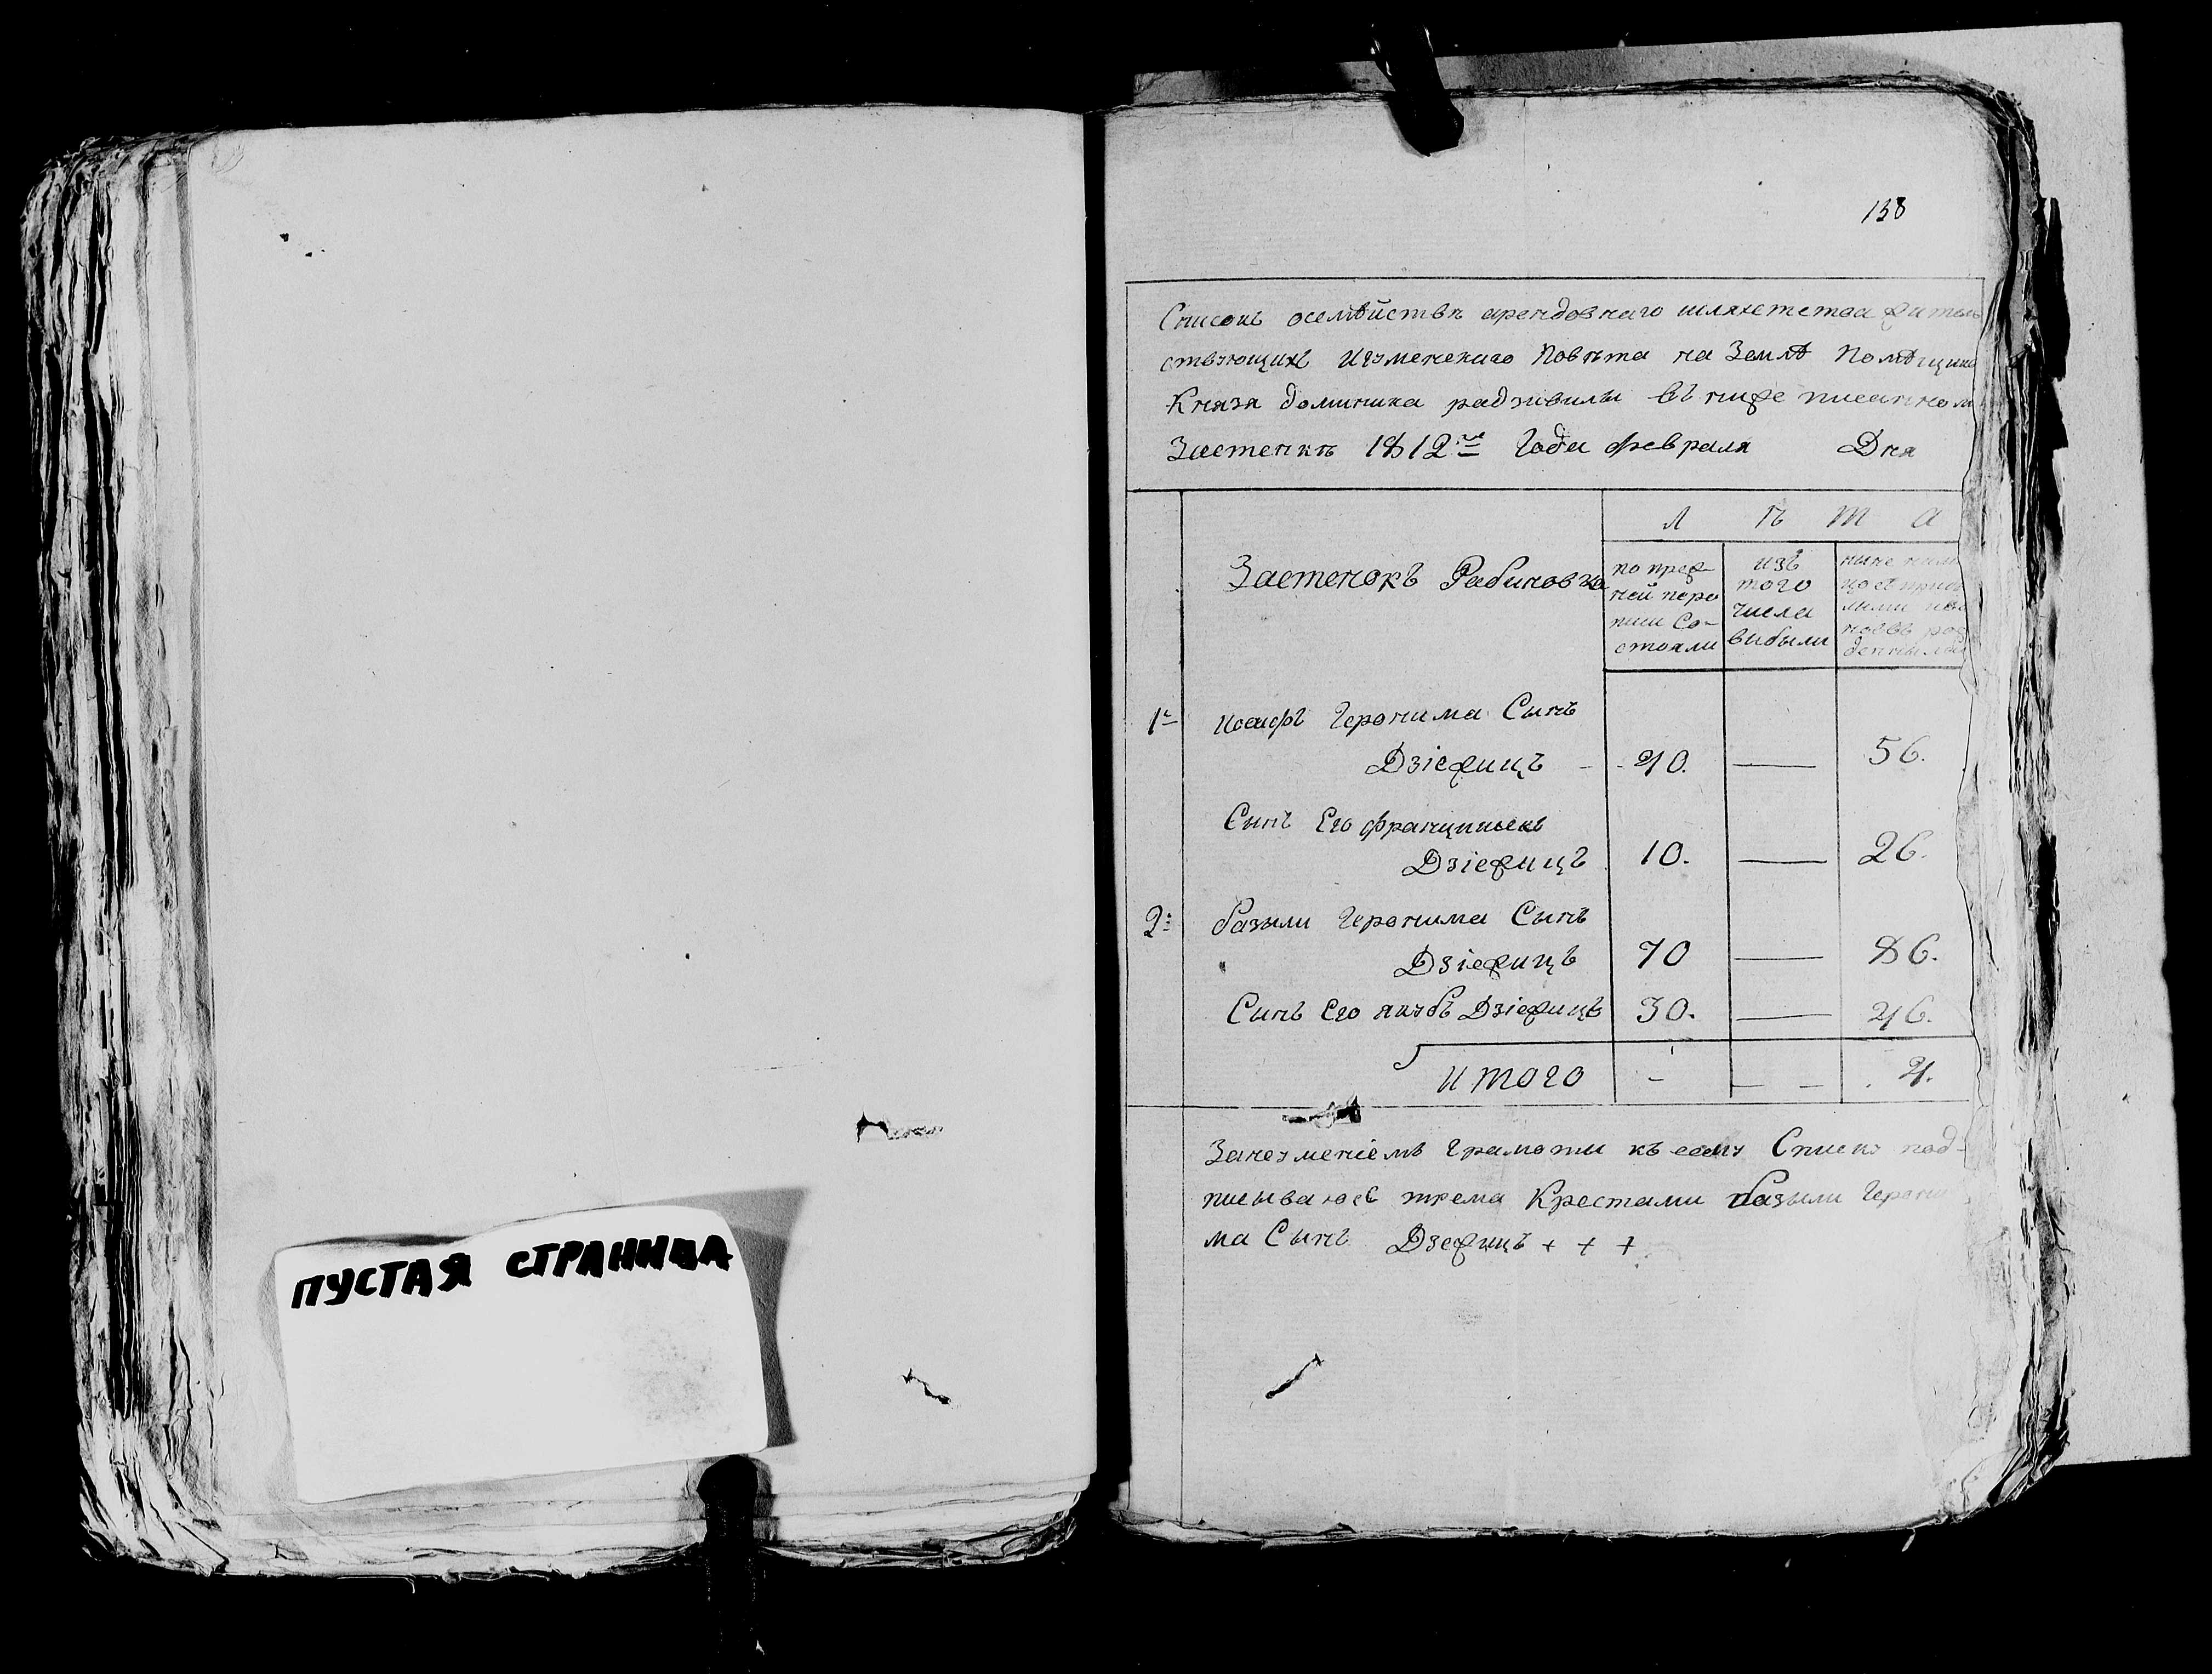 ПУСТАЯ СТРАНИЦА
138
Списокъ осемѣйствѣ арендовнаго шляхетства житель
ствующихъ Игуменскаго Повѣта на Землѣ Помѣщика
Князя доминика радзивилы въ ниже писанном
Застенкѣ 1812го Года февраля Дня
Л ѣ т а
Застенокъ Рабиновка
по преж
ней пере
писи Со-
стояли
изъ
того
числа
выбыли
ныне
новь рож
денными
1е Иосифъ Геронима Сынъ
Дзіежицъ - 40. — 56.
Сынъ Его францишекъ
Дзіежицъ 10. — 26.
2: базыли Геронима Сынъ
Дзіежицъ 70 — 86.
Сынъ Его якубъ Дзіежицъ 30. — 46.
Итого - — - 4.
Занеуменіемъ Грамоти къ сему Списку под-
писываюсь трема Крестами базыли Герони
ма Сынъ Дзежицъ + + +